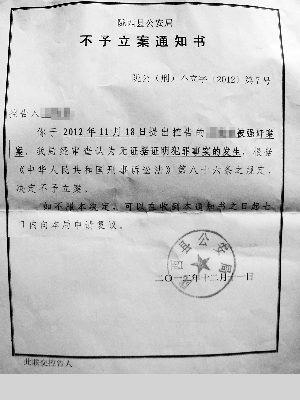 陇西县公安局
不予立案通知书
陇公(刑)不立字〔2012〕第7号
控告人
你于2012年11月18日提出控告的 被强奸案
案,我局经审查认为无证据证明犯罪事实的发生,根据
《中华人民共和国刑事诉讼法》第八十六条之规定,
决定不予立案。
如不服本决定,可以在收到本通知书之日起七
日内向本局申请复议。
县公安局
二〇一二年十二月十一日
此联交控告人